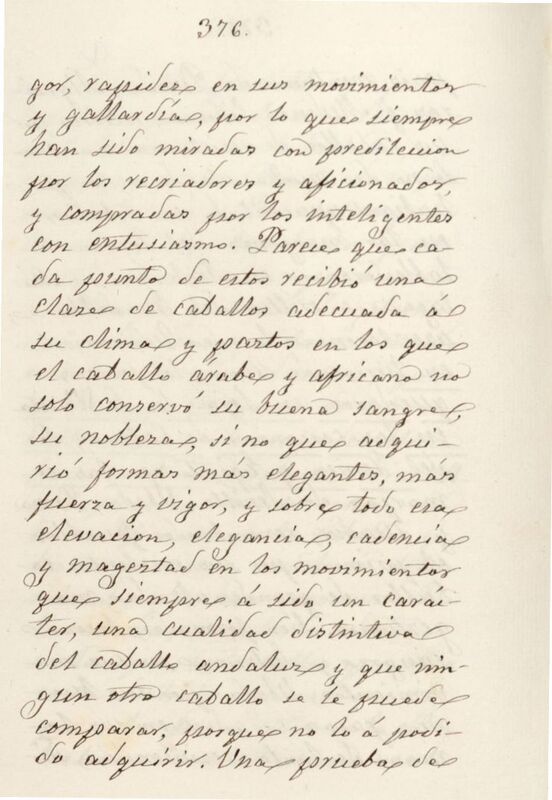 376.
gor, rapidez en sus movimientos
y gallardía, por lo que siempre
han sido miradas con predileccion
por los recriadores y aficionados,
y compradas por los inteligentes
con entusiasmo. Parece que ca-
da punto de estos recibió una
clase de caballos adecuada á
su clima y pastos en los que
el caballo árabe y africano no
solo conservó su buena sangre,
su nobleza, si no que adqui-
rió formas más elegantes, más
fuerza y vigor, y sobre todo esa
elevacion, elegancia, cadencia
y magestad en los movimientos
que siempre á sido un carác-
ter, una cualidad distintiva
del caballo andaluz y que nin-
gun otro caballo se le puede
comparar, porque no lo á podi-
do adquirir. Una prueba de